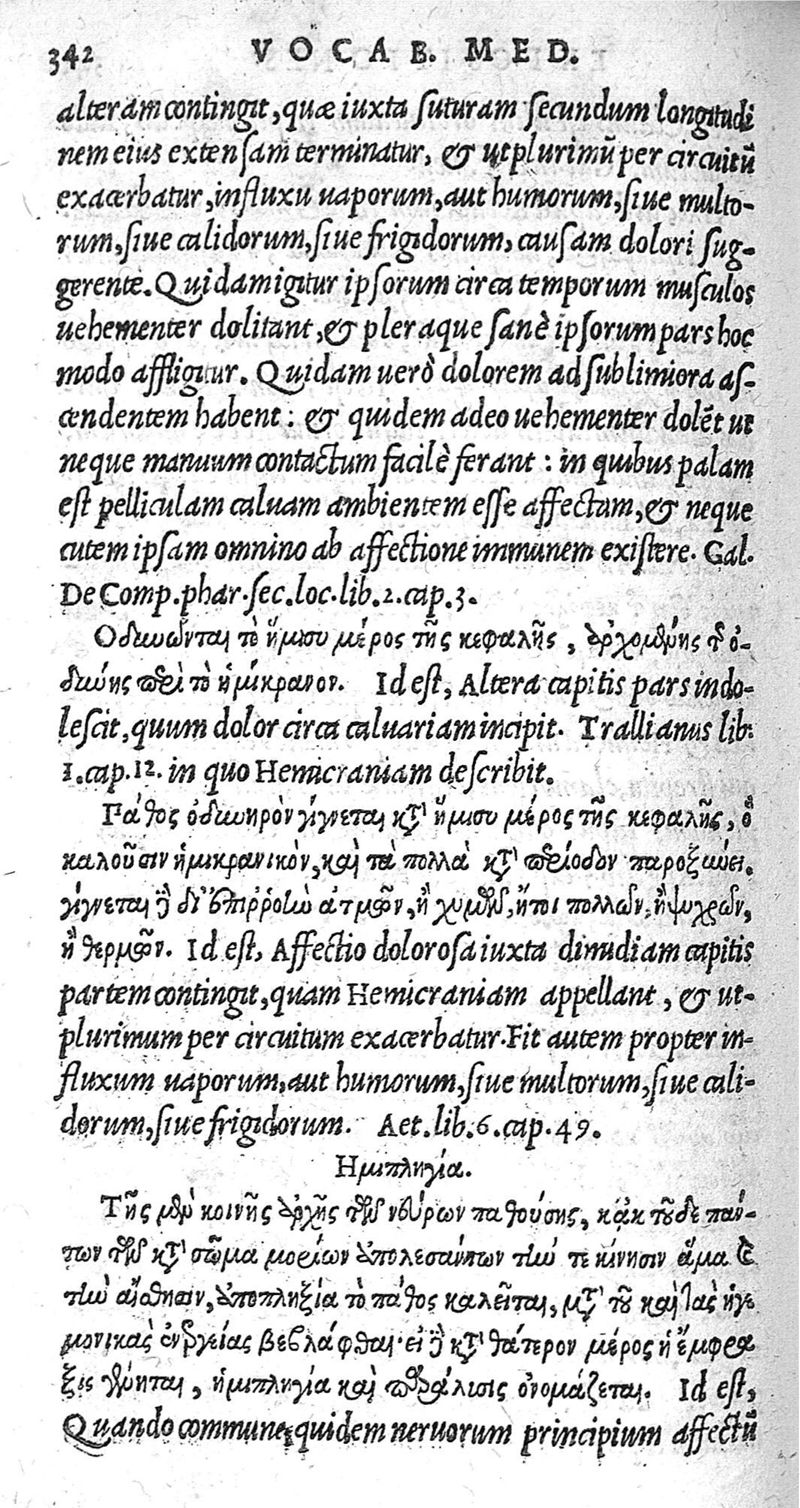 342 VOCAB. MED.
alteram contingit, quæ iuxta suturam secundum longitudi
nem eius extensam terminatur, & ut plurimũ per circuitũ
exacerbatur, influxu uaporum, aut humorum, siue multo-
rum, siue calidorum, siue frigidorum, causam dolori sug-
gerente. Quidam igitur ipsorum circa temporum musculos
uehementer dolitant, & pleraque sanè ipsorum pars hoc
modo affligitur. Quidam uerò dolorem ad sublimiora as-
cendentem habent: & quidem adeo uehementer dolẽt ut
neque manuum contactum facilè ferant: in quibus palam
est pelliculam caluam ambientem esse affectam, & neque
cutem ipsam omnino ab affectione immunem existere. Gal.
De Comp. phar. sec. loc. lib. 2. cap. 3.
Οδυνῶνται τὸ ἥμισυ μέρος τῆς κεφαλῆς, ἀρχομένης τ ὀ-
δυνης περὶ τὸ ἡμίκρανον. Id est, Altera capitis pars indo-
lescit, quum dolor circa caluariam incipit. Trallianus lib.
1. cap. 12. in quo Hemicraniam describit.
Πάθος ὀδυνηρὸν γίγνεται κατ' ἥμισυ μέρος τῆς κεφαλῆς, ὃ
καλοῦσιν ἡμικρανικὸν, καὶ τὰ πολλὰ κατὰ περίοδον παροξύνει.
γίγνεται δὲ δι' ἐπιρροιὼ ἀτμῶν, ἢ χυμῶν, ἤτοι πολλῶν, ἢ ψυχρῶν,
ἢ θερμῶν. Id est, Affectio dolorosa iuxta dimidiam capitis
partem contingit, quam Hemicraniam appellant, & ut-
plurimum per circuitum exacerbatur. Fit autem propter in-
fluxum uaporum, aut humorum, siue multorum, siue cali-
dorum, siue frigidorum. Aet. lib. 6. cap. 49.
Ημιπληγία.
Τῆς μὲν κοινῆς ἀρχῆς τῶν νεύρων παθούσης, κἀκ τοῦδε πάν-
των τῶν κατὰ σῶμα μορίων ἀπολεσάντων τὴν τε κίνησιν ἅμα καὶ
τὴν αἴσθησιν, ἀποπληξία τὸ πάθος καλεῖται, μετὰ τοῦ καὶ τὰς ἡγε
μονικὰς ἐνεργείας βεβλάφθαι· εἰ δὲ κατὰ θάτερον μέρος ἡ ἔμφρα
ξις γένηται, ἡμιπληγία καὶ παράλισις ὀνομάζεται. Id est,
Quando commune quidem neruorum principium affectũ